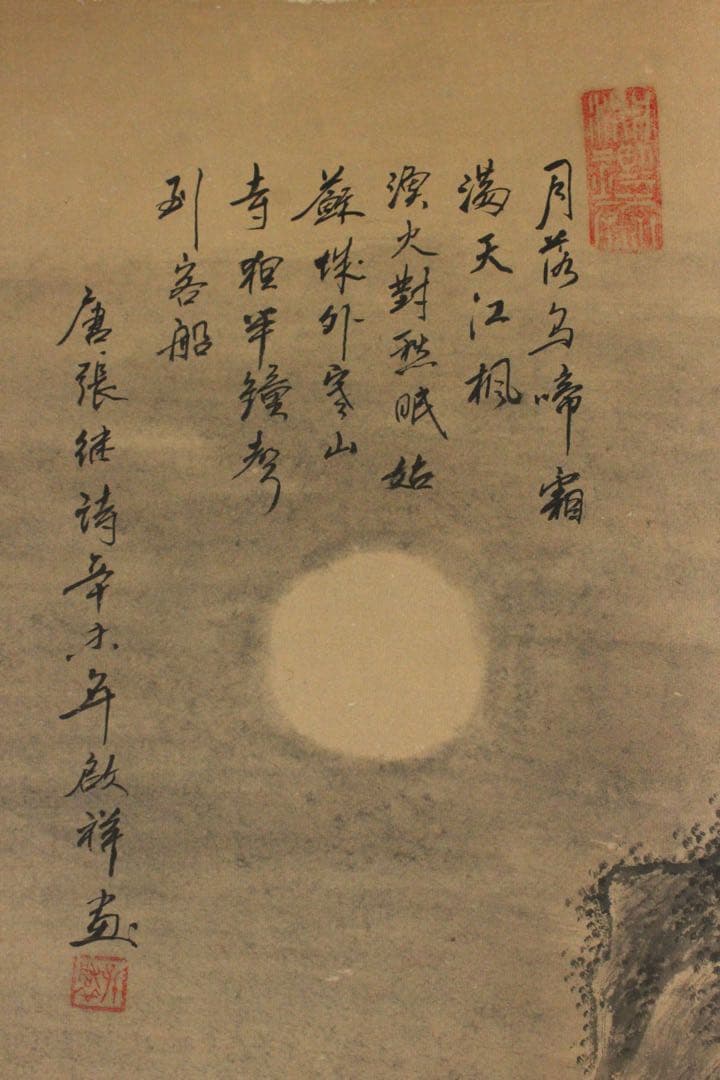 月落乌啼霜
满天江枫
渔火對愁眠姑
蘇城外寒山
寺夜半鐘聲
到客船
唐張继诗辛未年啟祥画